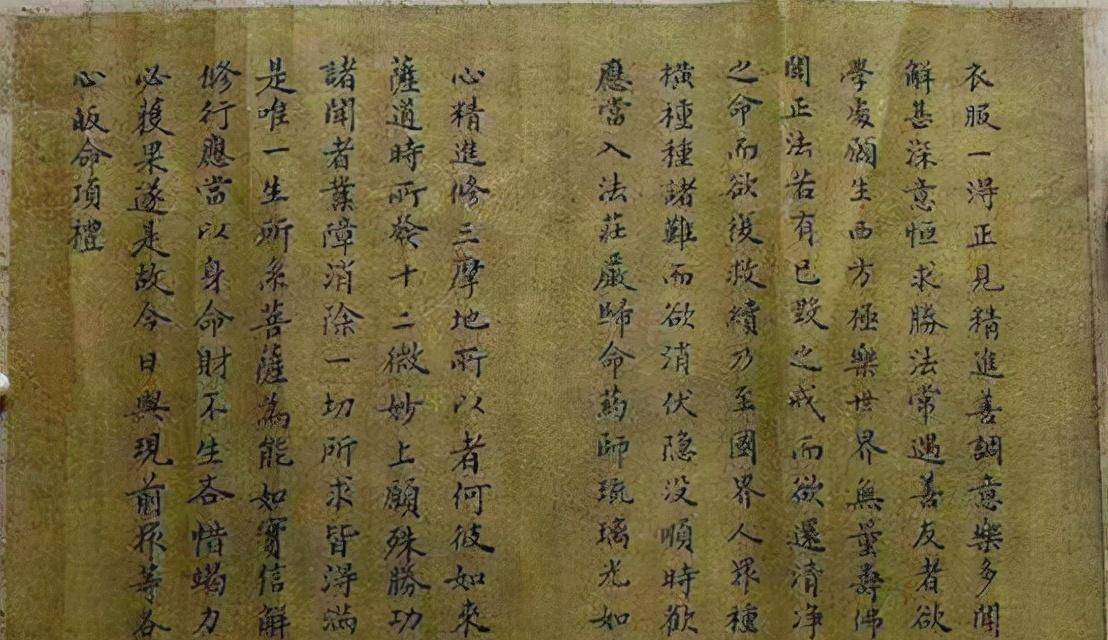 衣服一得正見精進善調意樂多聞
解甚深意恒求勝法常遇善友者欲
學處願生西方極樂世界無量壽佛
聞正法若有已毀之戒而欲還清净
之命而欲後救續乃至國界人眾種
橫種種諸難而欲消伏隐没順時歡
應當入法莊嚴歸命藥師琉璃光如
心精進修三摩地所以者何彼如來
薩道時所發十二微妙上願殊勝功
諸聞者業障消除一切所求皆得满
是唯一生所系菩薩為能如實信解
修行應當以身命財不生吝惜竭力
必獲果遂是故今日與現前衆等各
心皈命項禮